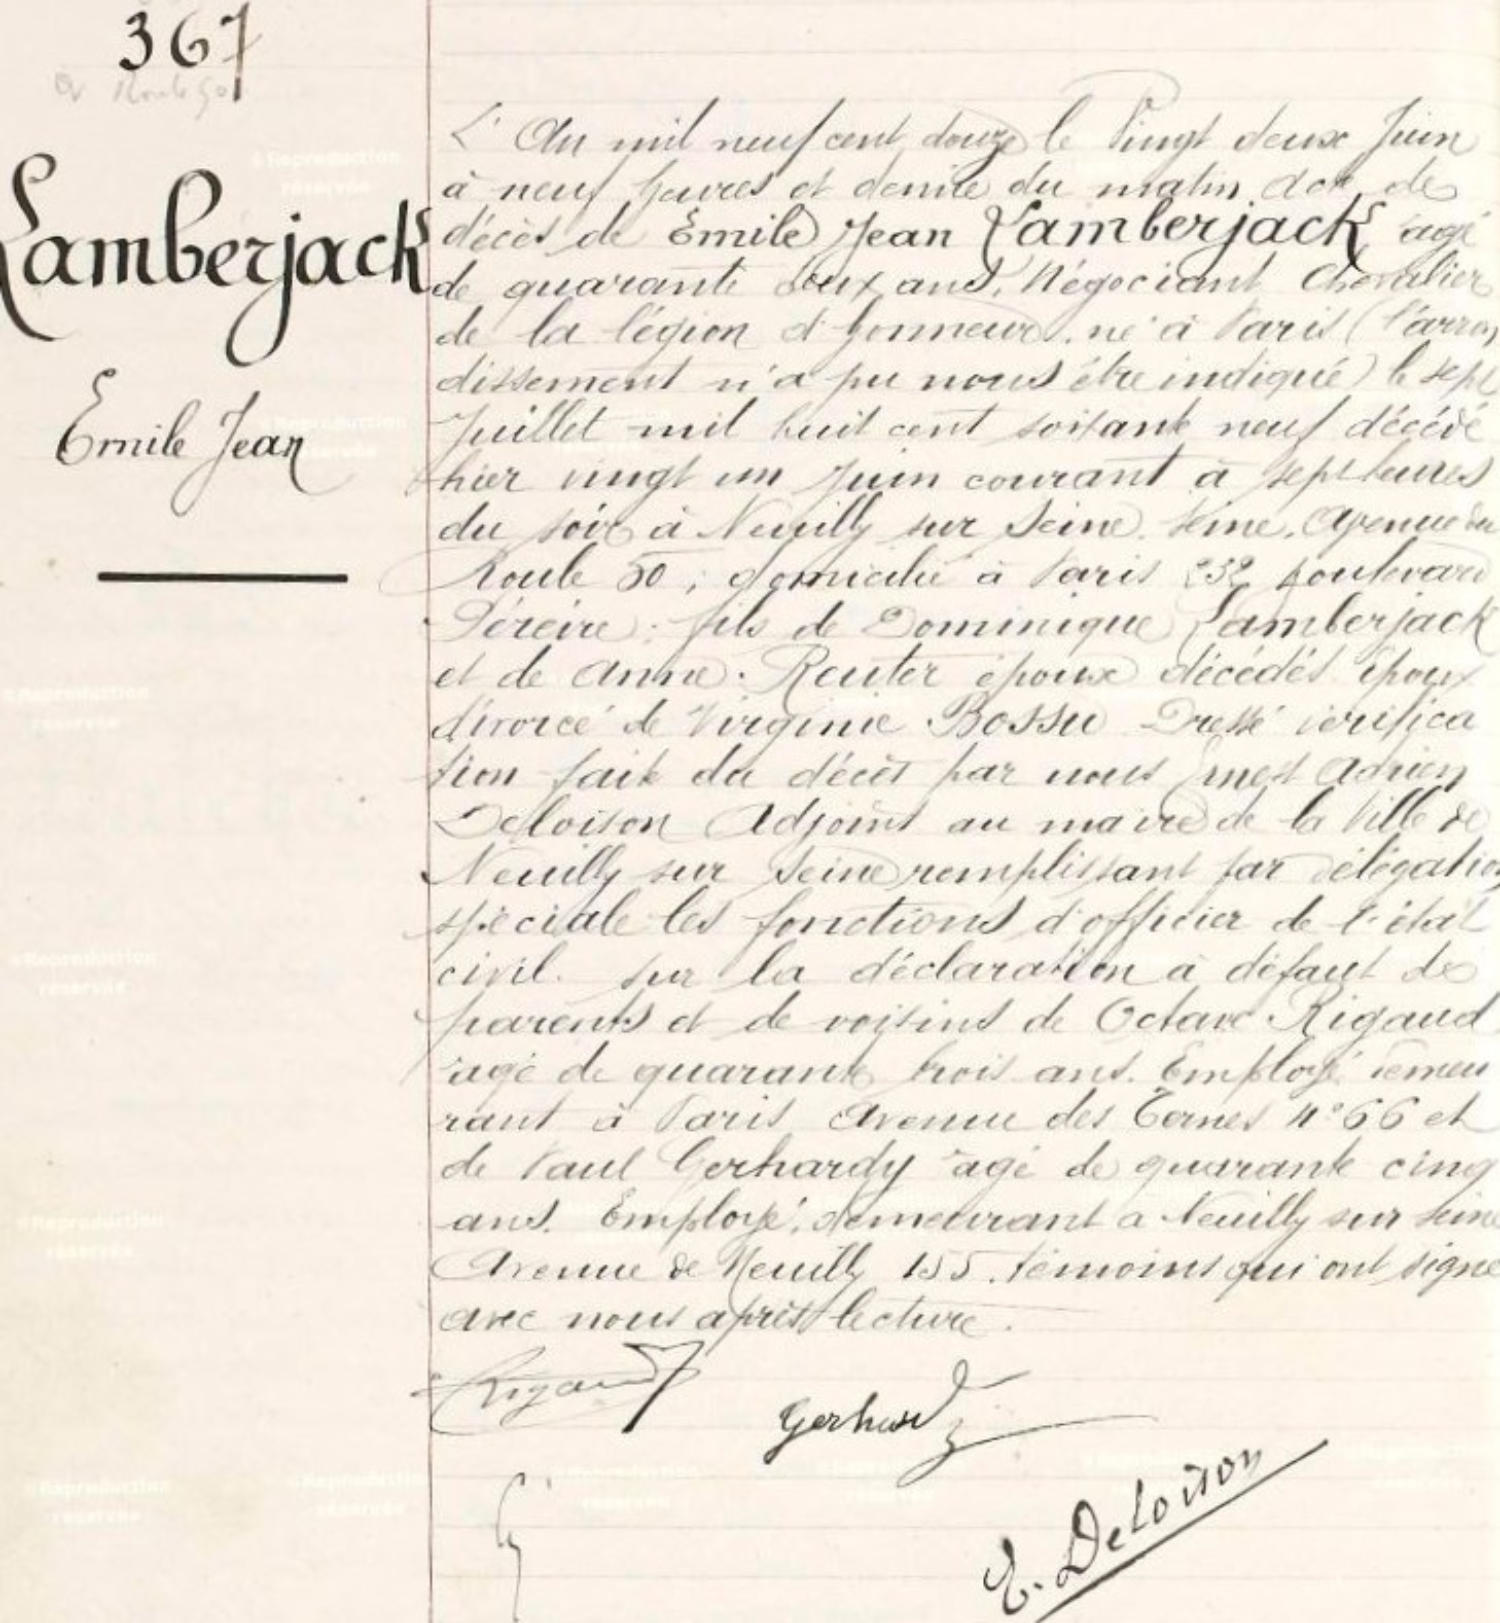 367
Av Roule 50
Lamberjack
Emile Jean
L'An mil neuf cent douze le Vingt deux Juin
à neuf heures et demie du matin acte de
décès de Emile Jean Lamberjack agé
de quarante deux ans, Négociant Chevalier
de la légion d'honneur. né à Paris (l'arron
dissement n'a pu nous être indiqué) le sept
Juillet mil huit cent soixante neuf décédé
hier vingt un Juin courant à sept heures
du soir à Neuilly sur Seine. Seine. Avenue du
Roule 50; domicilié à Paris 232 boulevard
Péreire; fils de Dominique Lamberjack
et de Anne Reuter époux décédés époux
divorcé de Virginie Bossu Dressé vérifica
tion faite du décès par nous Ernest Adrien
Deloison Adjoint au maire de la Ville de
Neuilly sur Seine remplissant par délégation
spéciale les fonctions d'officier de l'état
civil. sur la déclaration à défaut de
parents et de voisins de Octave Rigaud
agé de quarante trois ans. Employé demeu
rant à Paris Avenue des Ternes n° 66 et
de Paul Gerhardy agé de quarante cinq
ans. Employé. demeurant à Neuilly sur Seine
Avenue de Neuilly 155. témoins qui ont signé
avec nous après lecture.
Rigaud
Gerhardy
E. Deloison
© Reproduction
réservée